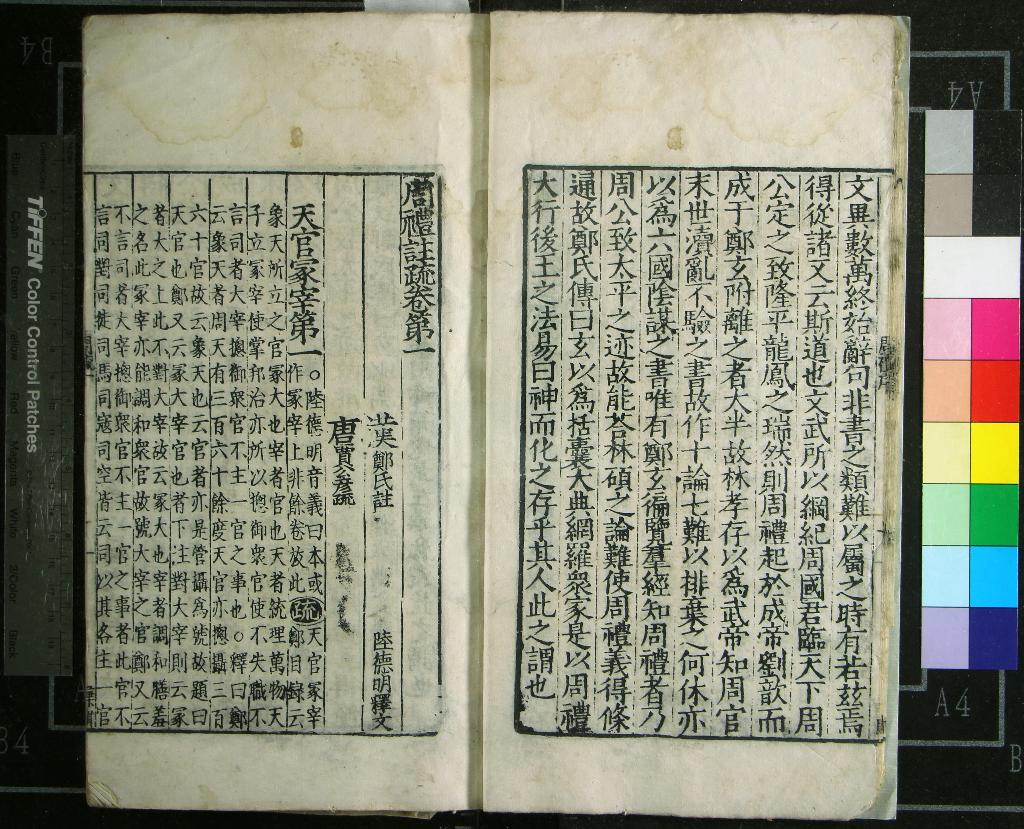 文異數萬終始辭句非書之類難以屬之時有若茲焉
得從諸又云斯道也文武所以綱紀周國君臨天下周
公定之致隆平龍鳳之瑞然則周禮起於成帝劉歆而
成于鄭玄附離之者大半故林孝存以為武帝知周官
末世瀆亂不驗之書故作十論七難以排棄之何休亦
以為六國陰謀之書唯有鄭玄徧覽羣經知周禮者乃
周公致太平之迹故能荅林碩之論難使周禮義得條
通故鄭氏傳曰玄以為括囊大典網羅衆家是以周禮
大行後王之法易曰神而化之存乎其人此之謂也
周禮註疏卷第一
鄭氏註
陸德明釋文
唐賈
天官冢宰第一
○陸德明音義曰本或
作冢宰上非餘卷放此
疏
天官冢宰
鄭目錄云
象天所立之官冢大也宰者官也天者統理萬物天
子立冢宰使掌邦治亦所以揔御衆官使不失職不
言司者大宰揔御衆官不主一官之事也○釋曰鄭
云象天者周天有三百六十餘度天官亦揔攝三百
六十官故云象天也云官者亦是管攝為號故題曰
天官也鄭又云冢大宰官也者下注對大宰則云冢
者大之上此不對大宰故云冢大也宰者調和膳羞
之名此冢宰亦能調和衆官故號大宰之官鄭又云
不言司者大宰揔御衆官不主一官之事者此官不
言司對司徒司馬司寇司空皆云司以其各主一官
TIFFEN Color Control Patches
A4
B4